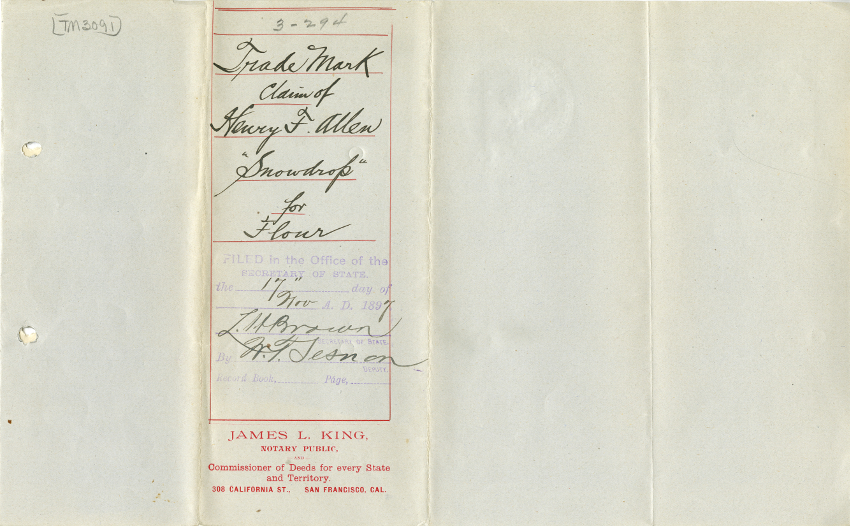 TM3091
3-294
Trade Mark
Claim of
Henry F. Allen
"Snowdrop"
for
Flour
FILED in the Office of the
SECRETARY OF STATE.
the 17" day of
Nov A. D. 1897
L. H. Brown
SECRETARY OF STATE.
By W. T. Sesnon
DEPUTY.
Record Book, Page,
JAMES L. KING,
NOTARY PUBLIC,
AND
Commissioner of Deeds for every State
and Territory.
308 CALIFORNIA ST., SAN FRANCISCO, CAL.